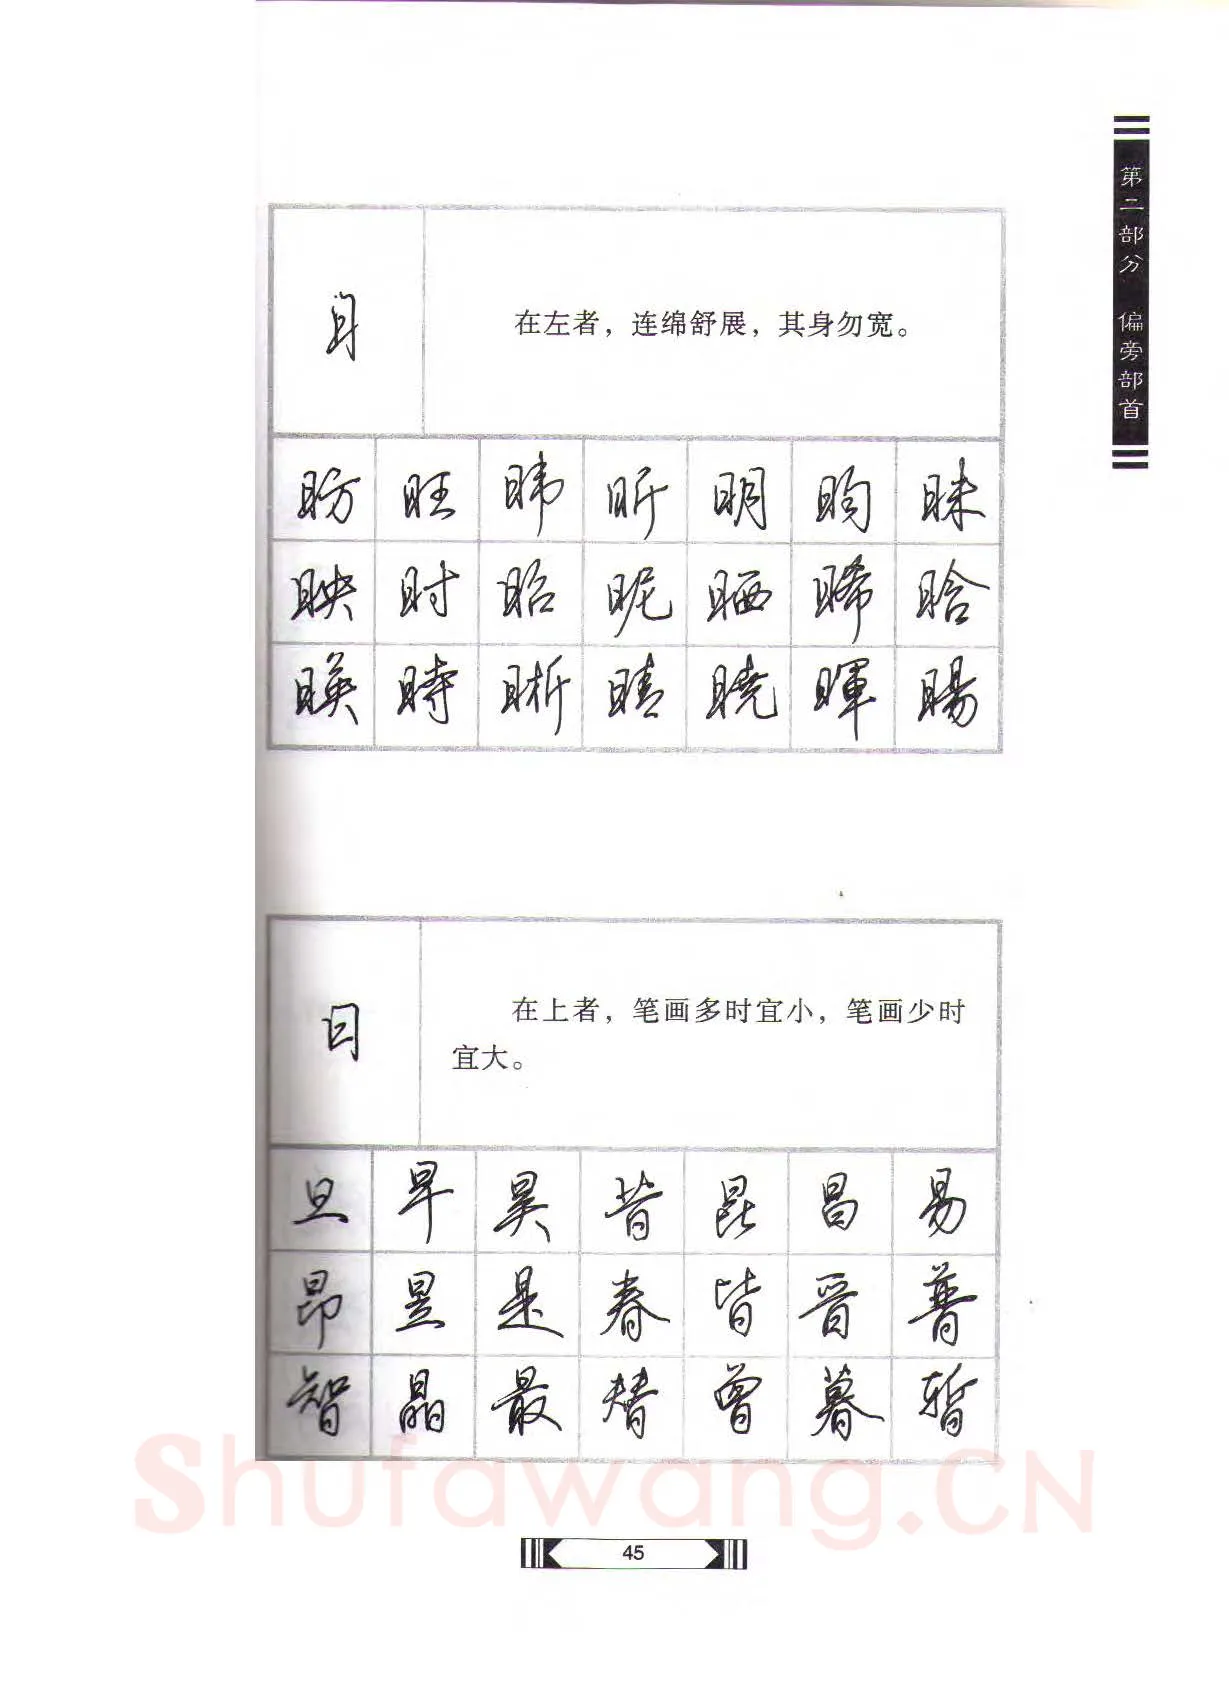 第二部分 偏旁部首
日
在左者，连绵舒展，其身勿宽。
昉 旺 昁 昕 明 昀 昧
映 时 昭 昵 晒 晞 晗
暎 時 晰 晴 曉 暉 暘
日
在上者，笔画多时宜小，笔画少时
宜大。
旦 早 昊 昔 昆 昌 易
昂 昱 是 春 皆 晋 普
智 晶 最 替 曾 暮 暂
Shufawang.CN
45